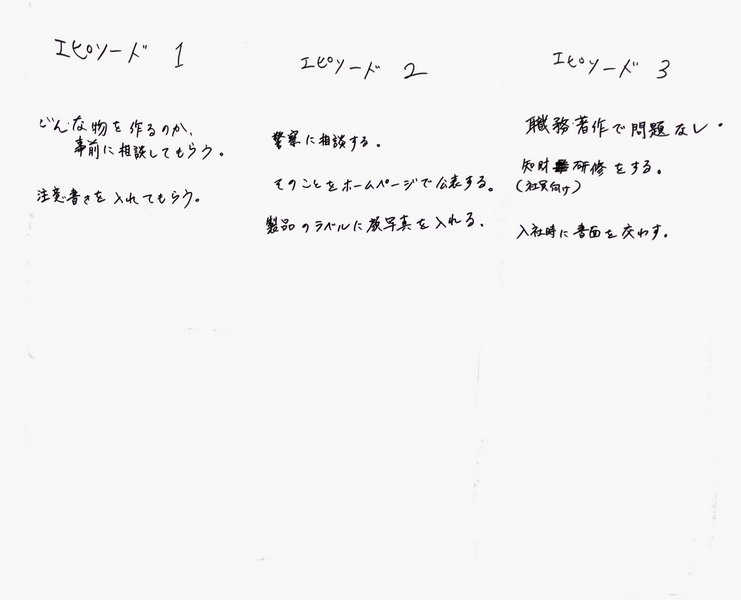 エピソード 1
どんな物を作るのか、
事前に相談してもらう。
注意書きを入れてもらう。
エピソード 2
警察に相談する。
そのことをホームページで公表する。
製品のラベルに顔写真を入れる。
エピソード 3
職務著作で問題なし。
知財研修をする。
(社員向け)
入社時に書面を交わす。